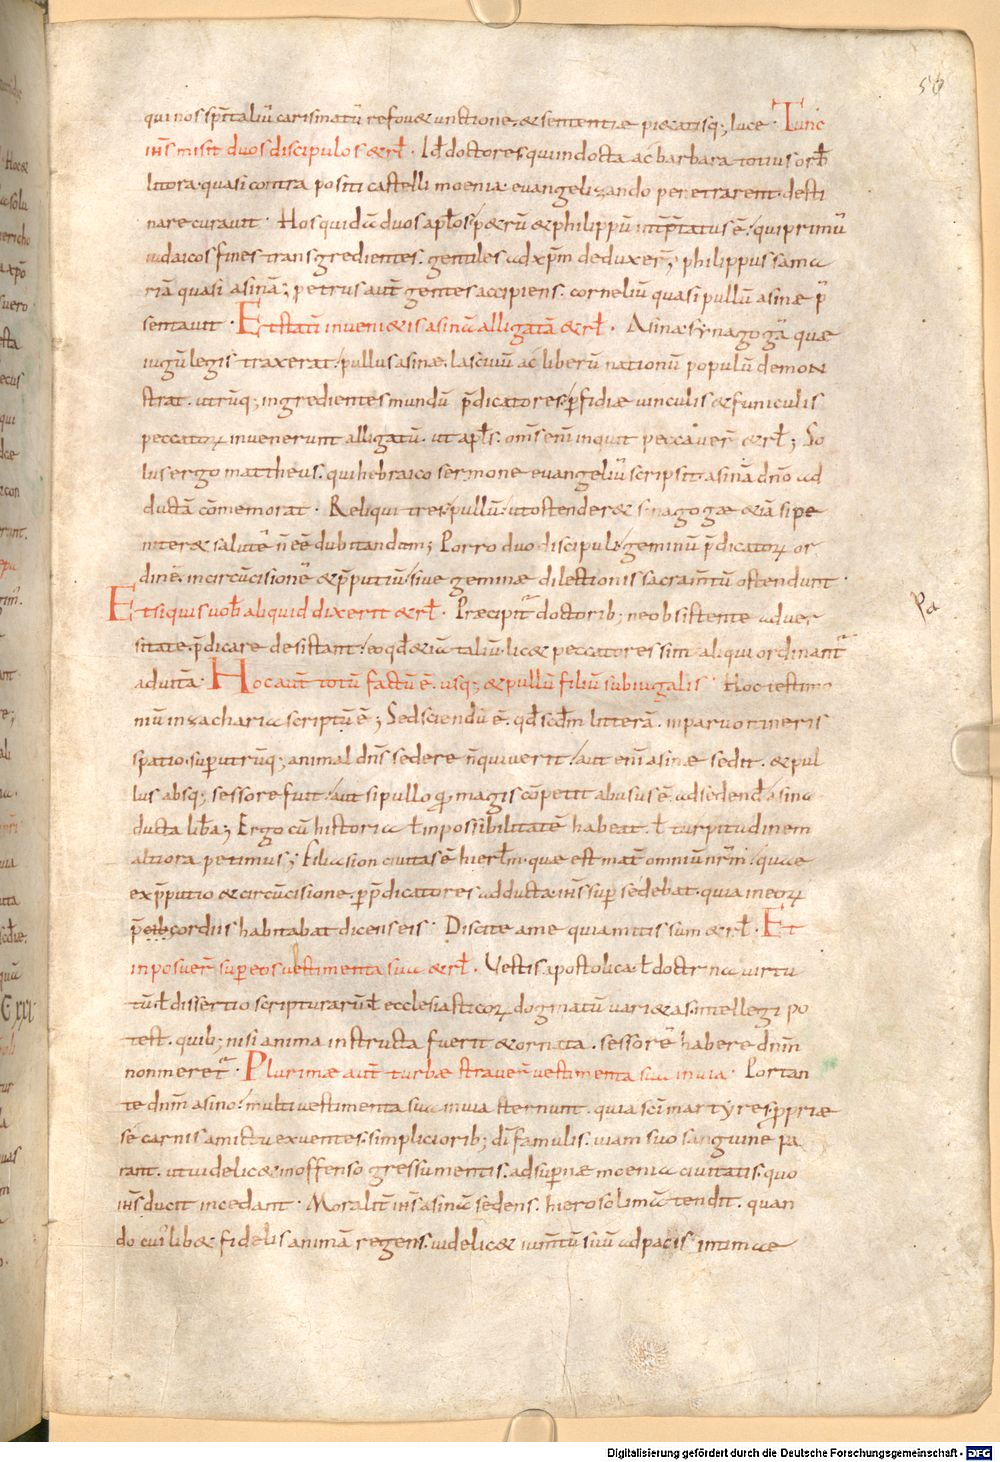 56
qui nos sp̄italiū carismatū refouet unctione. et sententiæ pietatisq; luce. Tunc
ih̄s misit duos discipulos et rł. Id ē doctores qui indocta ac barbara totius orb̄
litora. quasi contra positi castelli moenia. evangelizando penetrarent. desti
nare curavit. Hos quidā duos apłos petrū et philippū int̄p̄tatus ē. qui primū
iudaicos fines transgredientes. gentiles ad xp̄m deduxer̄; philippus sama
riā quasi asinā; petrus aut̄ gentes accipiens. corneliū quasi pullū asinæ p̄
sentavit. Et statī invenietis asinā alligatā et rł. Asina synagogā quæ
iugū legis traxerat. pullus asinæ. lascivū ac liberū nationū populū demon
strat. utrūq; ingredientes mundū p̄dicatores. perfidiæ vinculis et funiculis
peccatoꝝ invenerunt alligatū. ut apłs. oms enī inquit peccaver̄ et rł; So
lus ergo mattheus. qui hebraico sermone evangeliū scripsit. asinā dn̄o ad
ductā cōmemorat. Reliqui tres pullū. ut ostenderet synagogæ etiā si pe
niteret salutē n̄ eē dubitandam; Porro duo discipuli geminū p̄dicatoꝝ or
dinē. in circūcisionē et p̄putiū. sive geminæ dilectionis sacram̄tū ostendunt.
Et si quis vob̄ aliquid dixerit et rł. Præcipit̄ doctorib; ne obsistente adver
sitate. p̄dicare desistant. eo qd̄ etiā taliū. licet peccatores sint aliqui ordinant̄
ad vitā. Hoc aut̄ totū factū ē. usq; et pullū filiū subiugalis. Hoc testimo
niū in zacharia scriptū ē; Sed sciendū ē. qd̄ scd̄m litterā. in parvo itineris
spatio. super utrūq; animal dn̄s sedere n̄ quiverit. aut enī asinæ sedit. et pul
lus absq; sessore fuit. aut si pullo q̄ magis cōpetit abusus ē. ad sedendū asina
ducta libera; Ergo cū historia ł inpossibilitatē habeat. ł turpitudinem
altiora petimus; Filia sion civitas ē hierłm. quæ est mat̄ omniū nr̄m. quæ
ex p̄putio et circūcisione. per p̄dicatores adducta. ih̄s super sedebat. quia in eoꝝ
præcordiis habitabat dicens eis. Discite a me quia mitis sum et rł. Et
inposuer̄ super eos vestimenta sua et rł. Vestis apostolica. ł doctrina virtu
tū. ł dissertio scripturarū. ł ecclesiasticoꝝ dogmatū varietas intellegi po
test. quib; nisi anima instructa fuerit et ornata. sessorē habere dn̄m
non meret̄. Plurimæ aut̄ turbæ straver̄ vestimenta sua in via. Portan
te dn̄m asino. multi vestimenta sua in via sternunt. quia sc̄i martyres propriæ
se carnis amictu exuentes. simplicioribus; dī famulis. viam suo sanguine pa
rant. ut videlicet inoffenso gressu mentis. ad supernæ moenia civitatis. quo
ih̄s ducit incedant. Moralit̄ ih̄s asinā sedens. hierosolimā tendit. quan
do cui libet fidelis animā regens. videlicet ium̄tū suū ad pacis intimæ
Pa
Digitalisierung gefördert durch die Deutsche Forschungsgemeinschaft - DFG